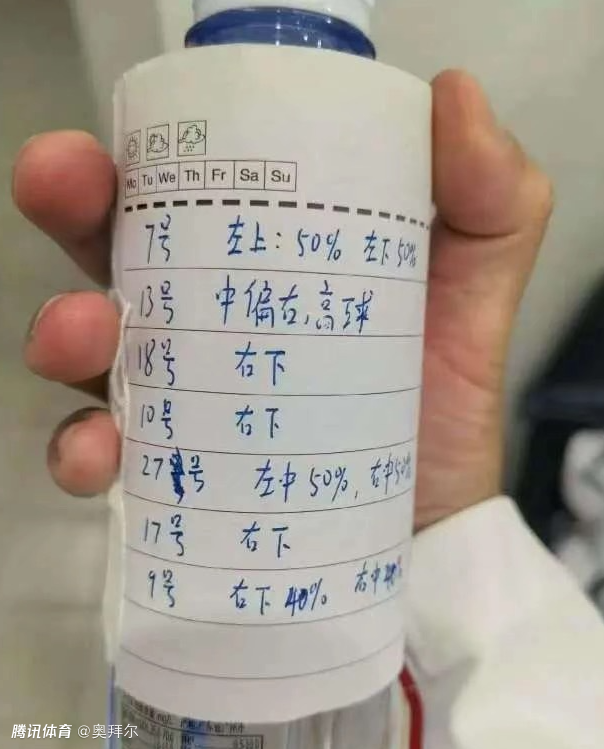 Mo Tu We Th Fr Sa Su
7号 左上:50% 左下50%
13号 中偏右,高球
18号 右下
10号 右下
27号 左中50%,右中50%
17号 右下
9号 右下40% 右中
腾讯体育 @奥拜尔